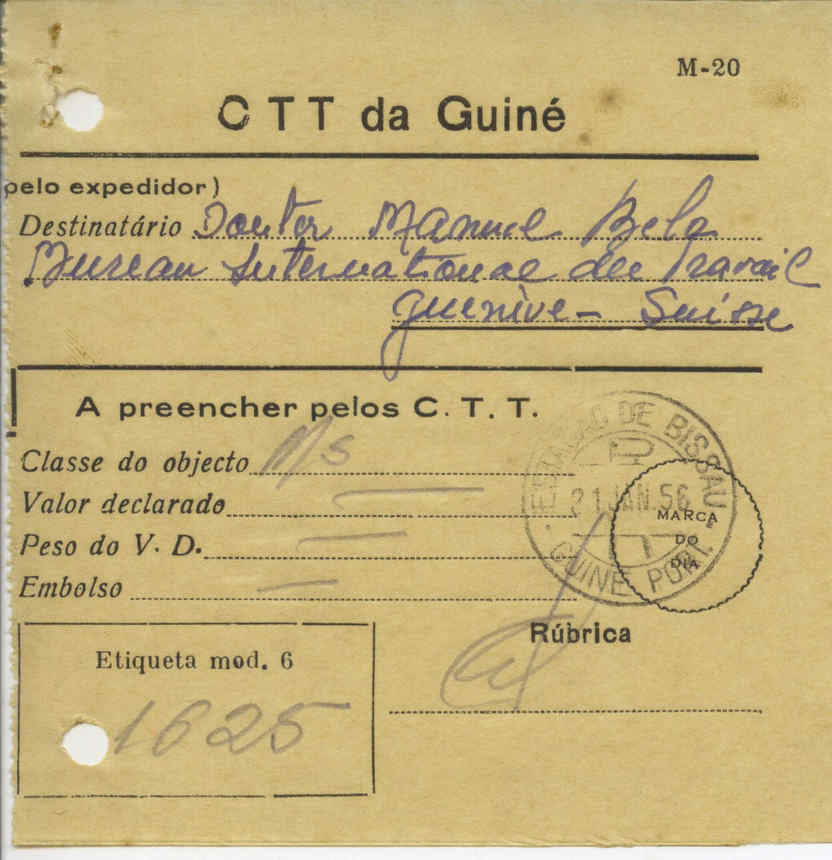 M-20
CTT da Guiné
pelo expedidor)
Destinatário Doutor Manuel Bela
Bureau International du Travail
Guenive - Suisse
A preencher pelos C. T. T.
Classe do objecto Ms
Valor declarado
Peso do V. D.
Embolso
ESTAÇÃO DE BISSAU
21 JAN. 56
GUINÉ PORT.
MARCA
DO
DIA
Rúbrica
Etiqueta mod. 6
1625